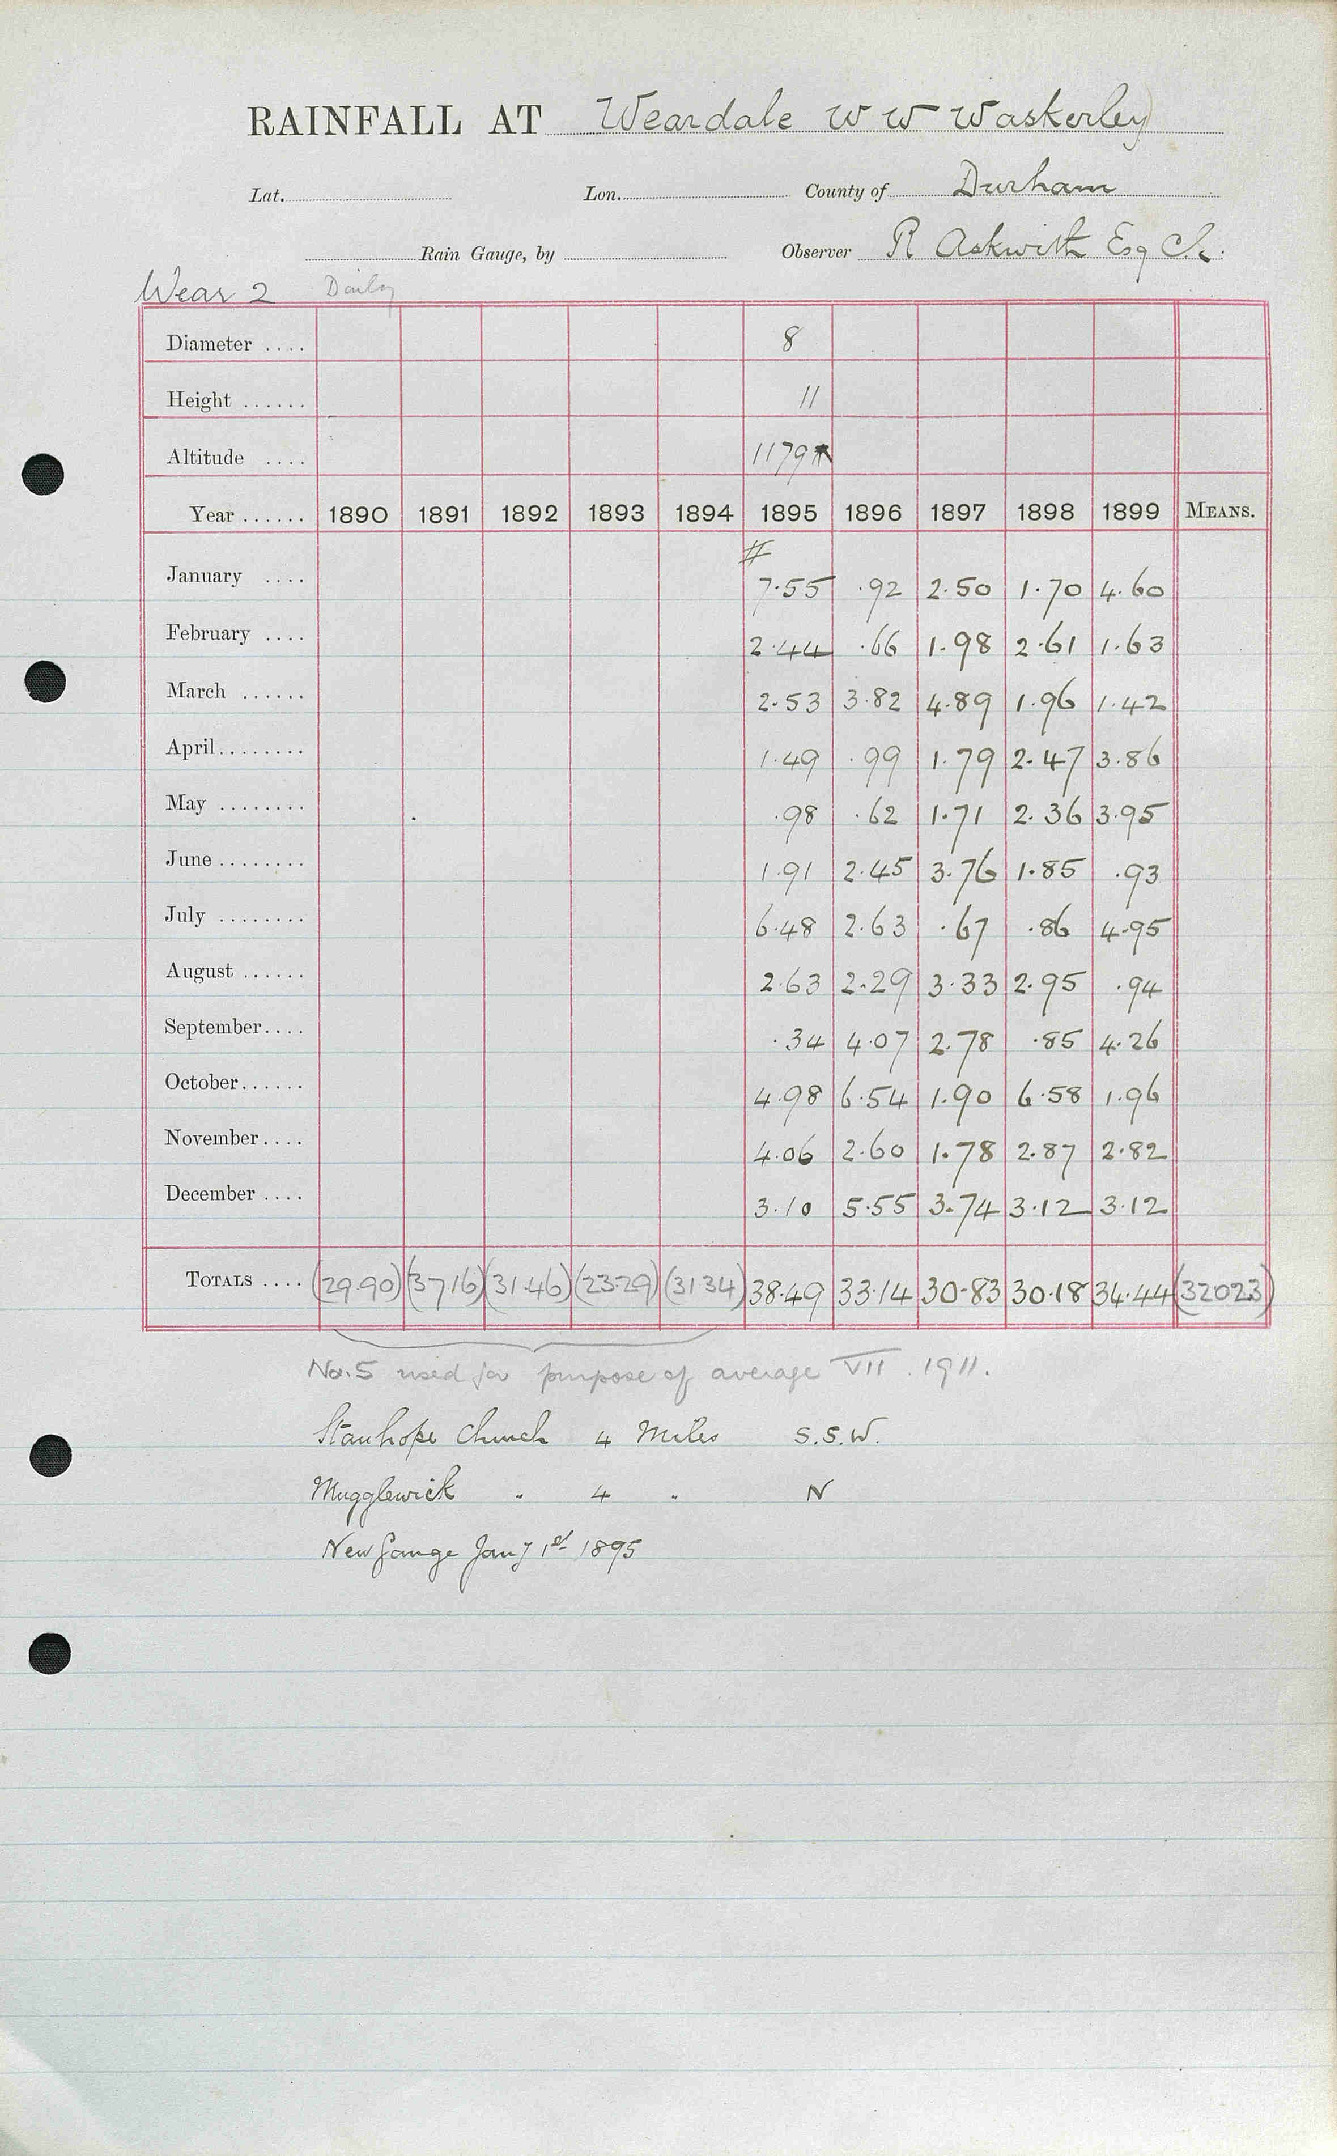 RAINFALL AT Weardale W W Waskerley
Lat. Lon. County of Durham
Rain Gauge, by Observer R Askwith Esq C.E.
Wear 2 Daily
Diameter .... 8
Height ...... 11
Altitude .... 1179
Year ...... 1890 1891 1892 1893 1894 1895 1896 1897 1898 1899 MEANS.
#
January .... 7.55 .92 2.50 1.70 4.60
February .... 2.44 .66 1.98 2.61 1.63
March ...... 2.53 3.82 4.89 1.96 1.42
April........ 1.49 .99 1.79 2.47 3.86
May ........ .98 .62 1.71 2.36 3.95
June ........ 1.91 2.45 3.76 1.85 .93
July ........ 6.48 2.63 .67 .86 4.95
August ...... 2.63 2.29 3.33 2.95 .94
September.... .34 4.07 2.78 .85 4.26
October...... 4.98 6.54 1.90 6.58 1.96
November.... 4.06 2.60 1.78 2.87 2.82
December .... 3.10 5.55 3.74 3.12 3.12
TOTALS .... (29.90) (37.16) (31.46) (23.29) (31.34) 38.49 33.14 30.83 30.18 34.44 (32023)
No. 5 used for purpose of average VII. 1911.
Stanhope Church 4 Miles S.S.W.
Mugglewick " 4 " N
New Gauge Jany 1st 1895